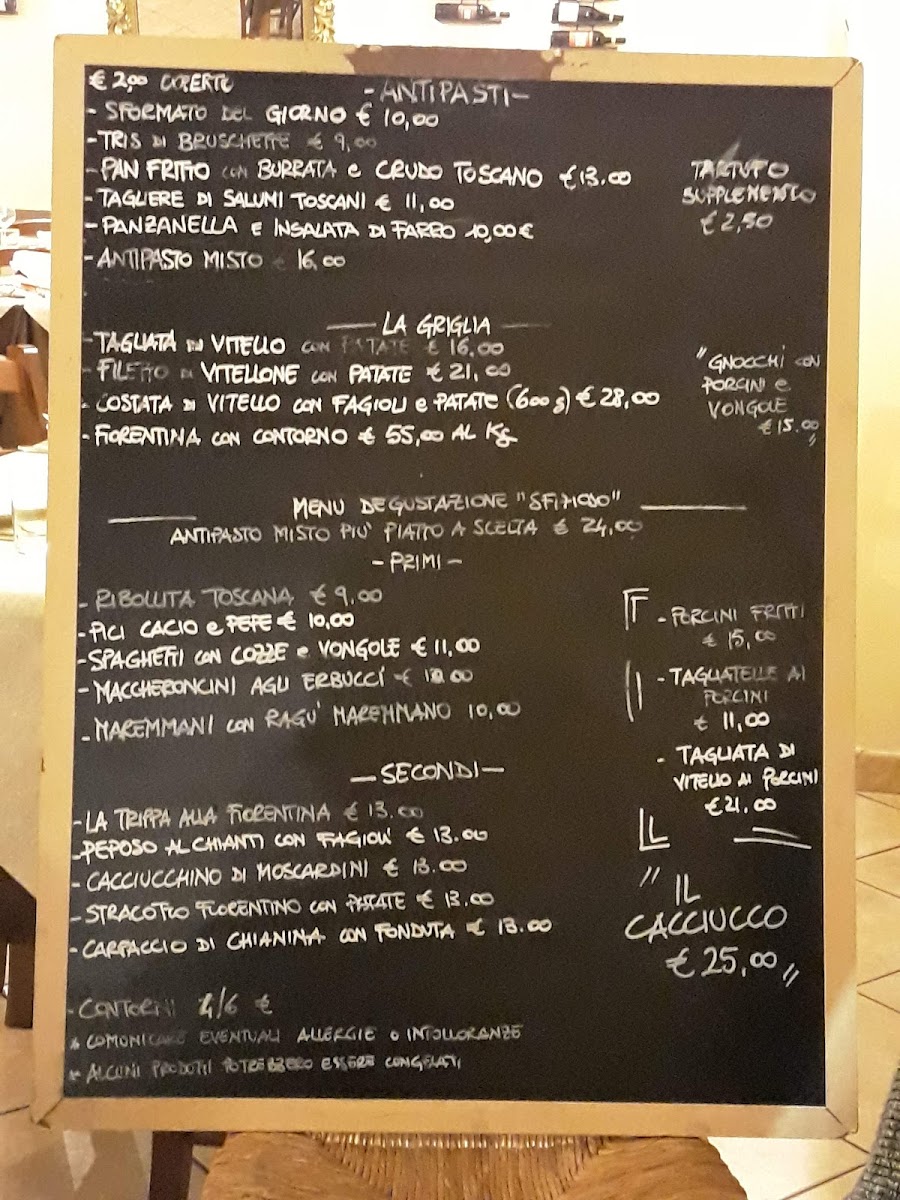 € 2,00 COPERTO
- ANTIPASTI -
- SFORMATO DEL GIORNO € 10,00
- TRIS DI BRUSCHETTE € 9,00
- PAN FRITTO CON BURRATA e CRUDO TOSCANO €13.00
- TAGLIERE DI SALUMI TOSCANI € 11,00
- PANZANELLA E INSALATA DI FARRO 10,00€
- ANTIPASTO MISTO € 16,00
TARTUFO
SUPPLEMENTO
€ 2,50
— LA GRIGLIA —
- TAGLIATA DI VITELLO CON PATATE € 16,00
- FILETTO DI VITELLONE CON PATATE € 21,00
- COSTATA DI VITELLO CON FAGIOLI e PATATE (600 g) € 28,00
- FIORENTINA CON CONTORNO € 55,00 AL Kg
"GNOCCHI CON
PORCINI e
VONGOLE
€ 15.00"
— MENU DEGUSTAZIONE "SFIZIOSO" —
ANTIPASTO MISTO PIU' PIATTO A SCELTA € 24,00
- PRIMI -
- RIBOLLITA TOSCANA € 9,00
- PICI CACIO e PEPE € 10,00
- SPAGHETTI CON COZZE e VONGOLE € 11,00
- MACCHERONCINI AGLI ERBUCCI €
- MAREMMANI CON RAGU' MAREMMANO 10,00
- PORCINI FRITTI
€ 15,00
- TAGLIATELLE AI
PORCINI
€ 11,00
- TAGLIATA DI
VITELLO AI PORCINI
€ 21.00
— SECONDI —
- LA TRIPPA ALLA FIORENTINA € 13.00
- PEPOSO AL CHIANTI CON FAGIOLI € 13.00
- CACCIUCCHINO DI MOSCARDINI € 13.00
- STRACOTTO FIORENTINO CON PATATE € 13.00
- CARPACCIO DI CHIANINA CON FONDUTA € 13.00
"IL
CACCIUCCO
€ 25,00"
- CONTORNI 4/6 €
* COMUNICARE EVENTUALI ALLERGIE O INTOLLORANZE
* ALCUNI PRODOTTI POTREBBERO ESSERE CONGELATI